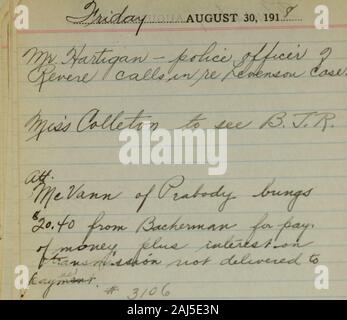 Friday AUGUST 30, 1918
Mr. Hartigan – police officer of
Revere calls in re Levenson Case.
Miss Colleton to see B. J. R.
Att.
McVann of Peabody brings
$20.40 from Backerman for pay.
of money plus interest on
transmission not delivered to
# 3106
alamy
2AJ5E3N